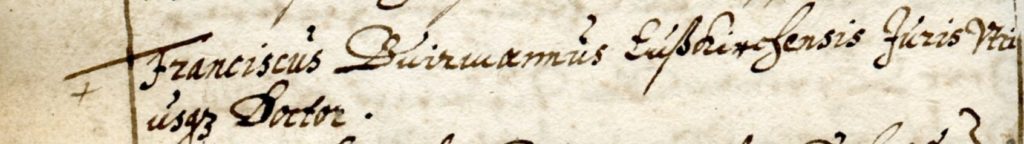 Franciscus Buirmannus Eußkirchensis Juris Vtri
usqz Doctor.